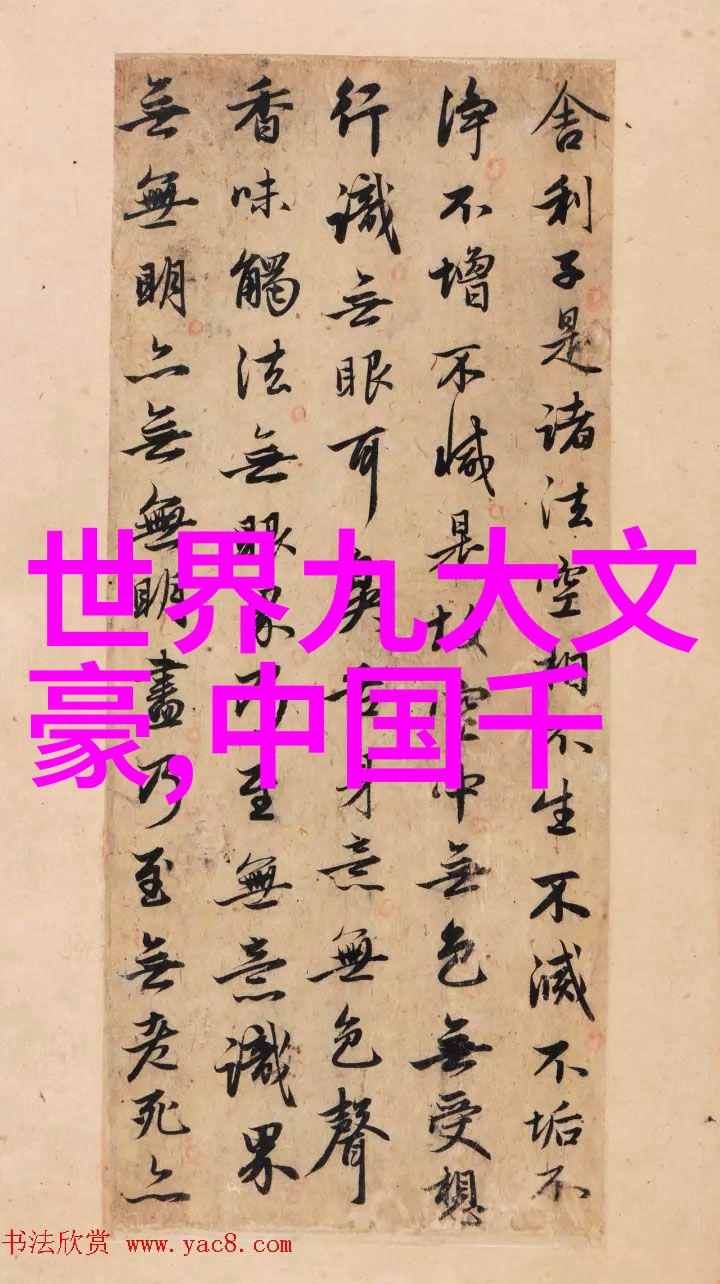 舍利子是诸法空相不生不滅不垢不
淨不增不減是故空中無色無受想
行識無眼耳鼻舌身意無色聲
香味觸法無眼界乃至無意識界
無無明亦無無明盡乃至無老死亦
世界九大文
豪,中国千
书法欣赏 www.yac8.com